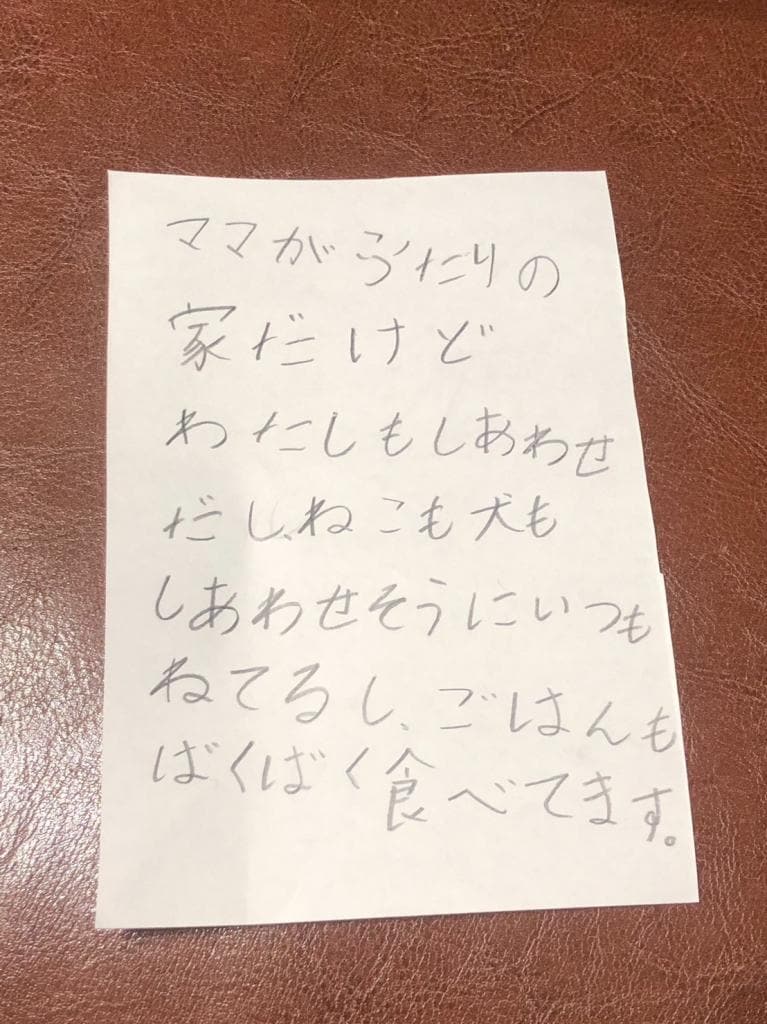 ママがふたりの
家だけど
わたしもしあわせ
だし、ねこも犬も
しあわせそうにいつも
ねてるし、ごはんも
ばくばく食べてます。